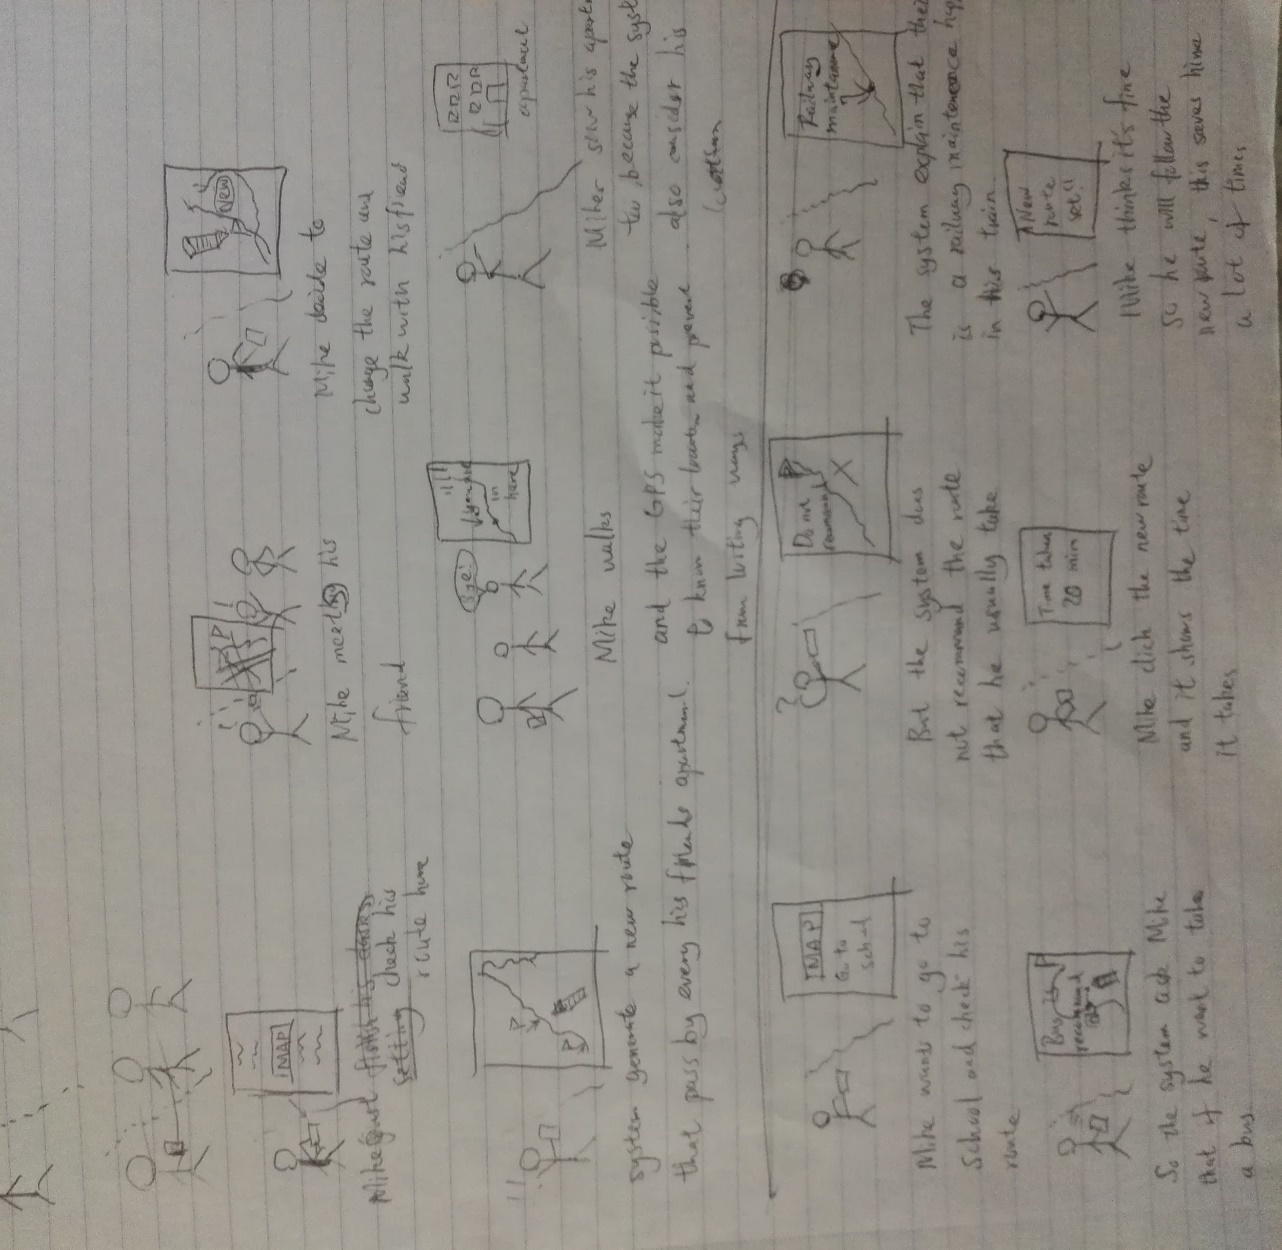 MAP
Mike just
setting check his
route home
Mike meeting his
friend
New
Mike decide to
change the route and
walk with his friend
P
P
system generate a new route
that pass by every his friends apartment.
Bye!
in
here
Mike walks
and the GPS make it possible
to know their location and prevent
from
apartment
Mike saw his
too, because the
also consider his
location
MAP
Go to
school
Mike wants to go to
School and check his
route
?
Do not
recommend
P
X
But the system does
not recommend the route
that he usually take
Railway
maintenance
The system explain that
is a railway maintenance
in this train
Bus is
recommend
So the system ask Mike
that if he want to take
a bus.
Time taken
20 min
Mike click the new route
and it shows the time
it takes
New
route
set!!
Mike thinks it's fine
So he will follow the
new route, this saves hime
a lot of times